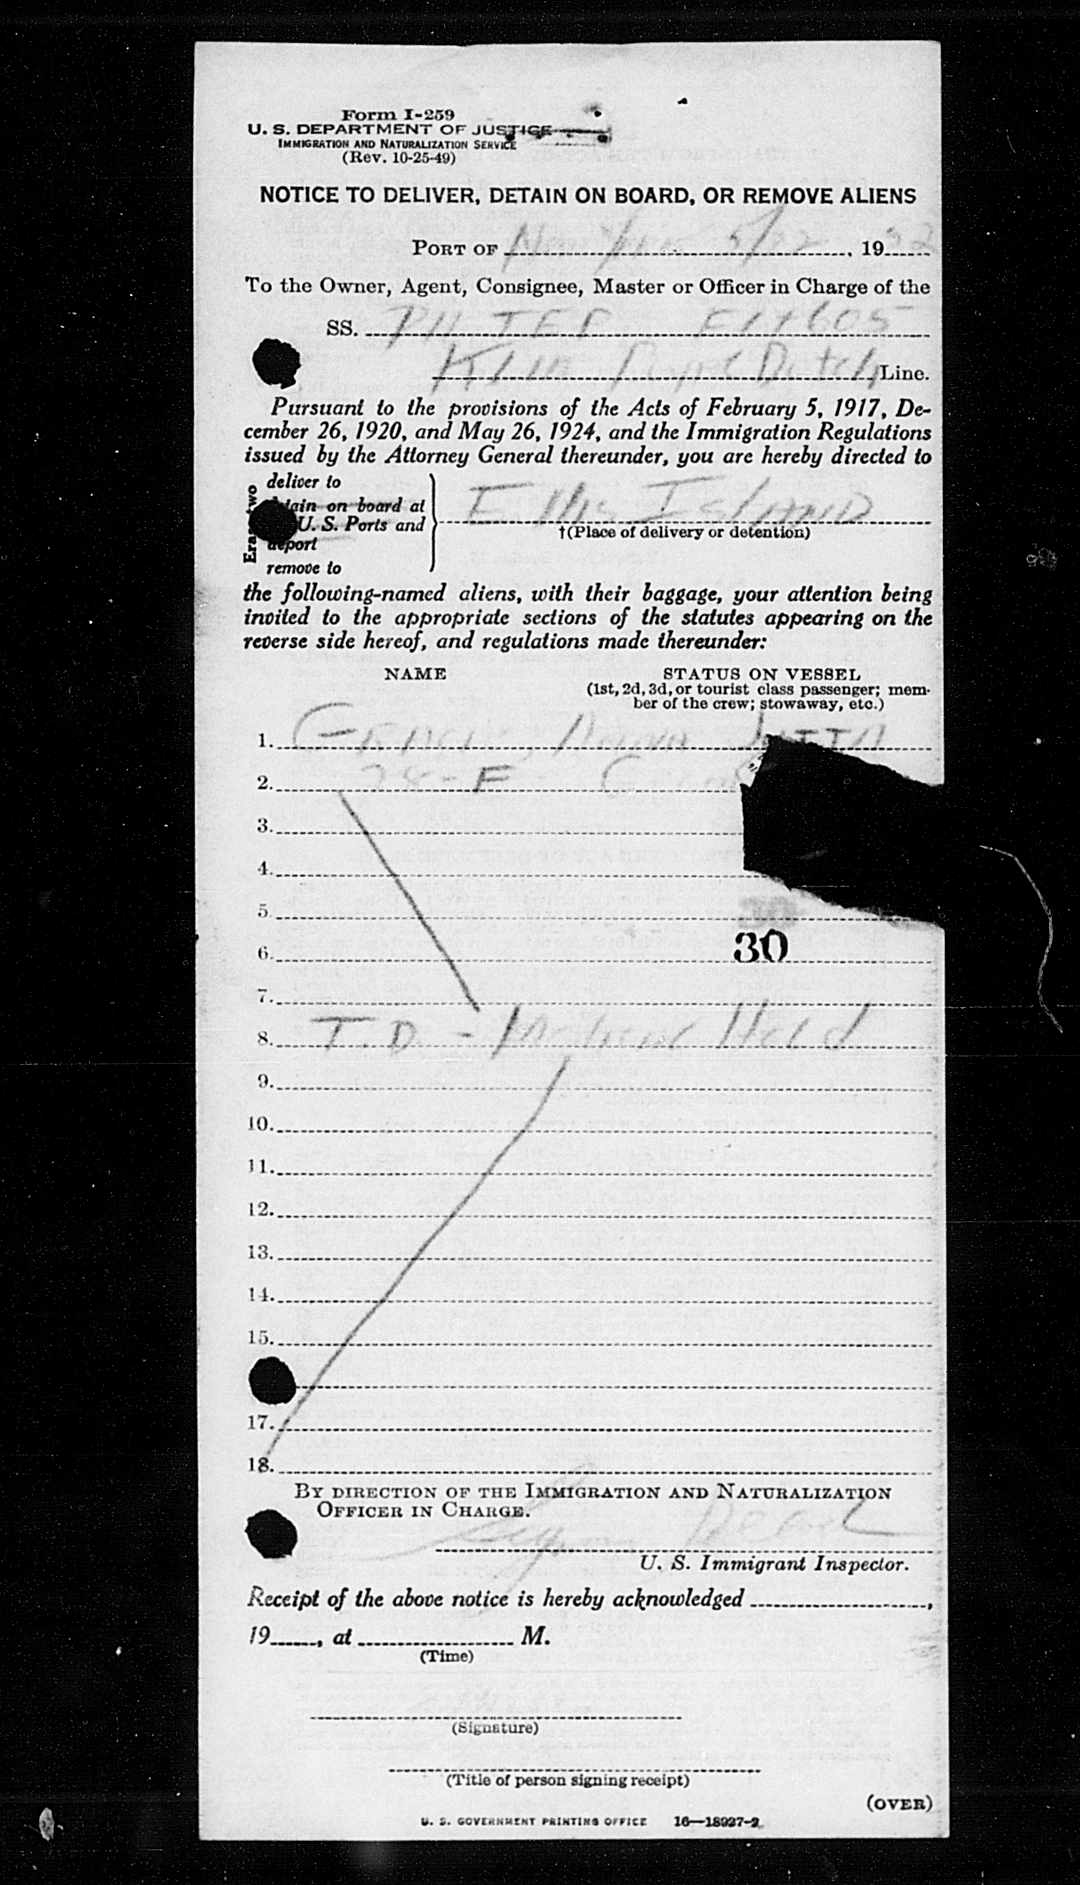 Form I-259
U. S. DEPARTMENT OF JUSTICE
IMMIGRATION AND NATURALIZATION SERVICE
(Rev. 10-25-49)
NOTICE TO DELIVER, DETAIN ON BOARD, OR REMOVE ALIENS
PORT OF New York 5/22, 1952
To the Owner, Agent, Consignee, Master or Officer in Charge of the
SS. PH TEF Flt 605
KLM Royal Dutch Line.
Pursuant to the provisions of the Acts of February 5, 1917, De-
cember 26, 1920, and May 26, 1924, and the Immigration Regulations
issued by the Attorney General thereunder, you are hereby directed to
Erase two
deliver to
detain on board at
U. S. Ports and
deport
remove to
Ellis Island
†(Place of delivery or detention)
the following-named aliens, with their baggage, your attention being
invited to the appropriate sections of the statutes appearing on the
reverse side hereof, and regulations made thereunder:
NAME STATUS ON VESSEL
(1st, 2d, 3d, or tourist class passenger; mem-
ber of the crew; stowaway, etc.)
1. Anna
2. 28 - F
3.
4.
5.
30
6.
7.
8. T.D. - Medical Hold
9.
10.
11.
12.
13.
14.
15.
17.
18.
BY DIRECTION OF THE IMMIGRATION AND NATURALIZATION
OFFICER IN CHARGE.
U. S. Immigrant Inspector.
Receipt of the above notice is hereby acknowledged
19 , at M.
(Time)
(Signature)
(Title of person signing receipt)
(OVER)
U. S. GOVERNMENT PRINTING OFFICE 16—18927-2